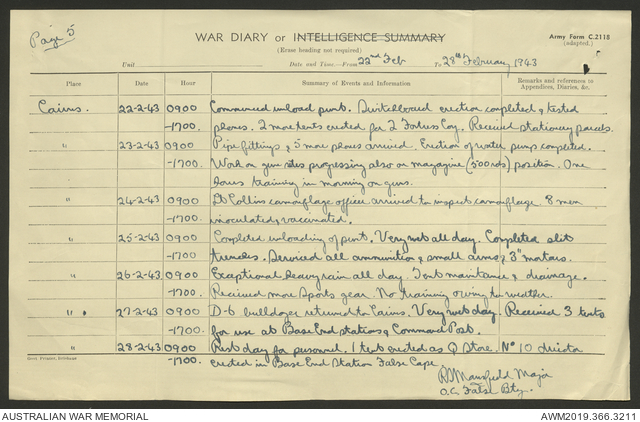 Page 5
WAR DIARY or INTELLIGENCE SUMMARY
Army Form C.2118
(adapted.)
(Erase heading not required)
Unit
Date and Time—From 22nd Feb To 28th February 1943
Place
Date
Hour
Summary of Events and Information
Remarks and references to
Appendices, Diaries, &c.
Cairns. 22-2-43 0900 Commenced unload punt. Switchboard erection completed & tested
-1700. phones. 2 more tents erected for 2 Fortress Coy. Received stationery parcels.
" 23-2-43 0900 Pipe fittings & 5 more phones arrived. Erection of water pump completed.
-1700. Work on gun sites progressing also on magazine (500 rds) position. One
hours training in morning on guns.
" 24-2-43 0900 Lt Collins camouflage officer arrived to inspect camouflage. 8 men
-1700. inoculated & vaccinated.
" 25-2-43 0900 Completed unloading of punt. Very wet all day. Completed slit
-1700 trenches. Serviced all ammunition & small arms & 3" mortars.
" 26-2-43 0900 Exceptional heavy rain all day. Tent maintance & drainage.
-1700. Received more sports gear. No training owing to weather.
" 27-2-43 0900 D-6 bulldozer returned to Cairns. Very wet day. Received 3 tents
-1700 for use at Base End stations & Command Post.
" 28-2-43 0900 Rest day for personnel. 1 tent erected as Q Store. No 10 director
-1700. erected in Base End Station False Cape
Mansfield Major
O.C. False Bty.
Govt Printer, Brisbane
AUSTRALIAN WAR MEMORIAL
AWM2019.366.3211